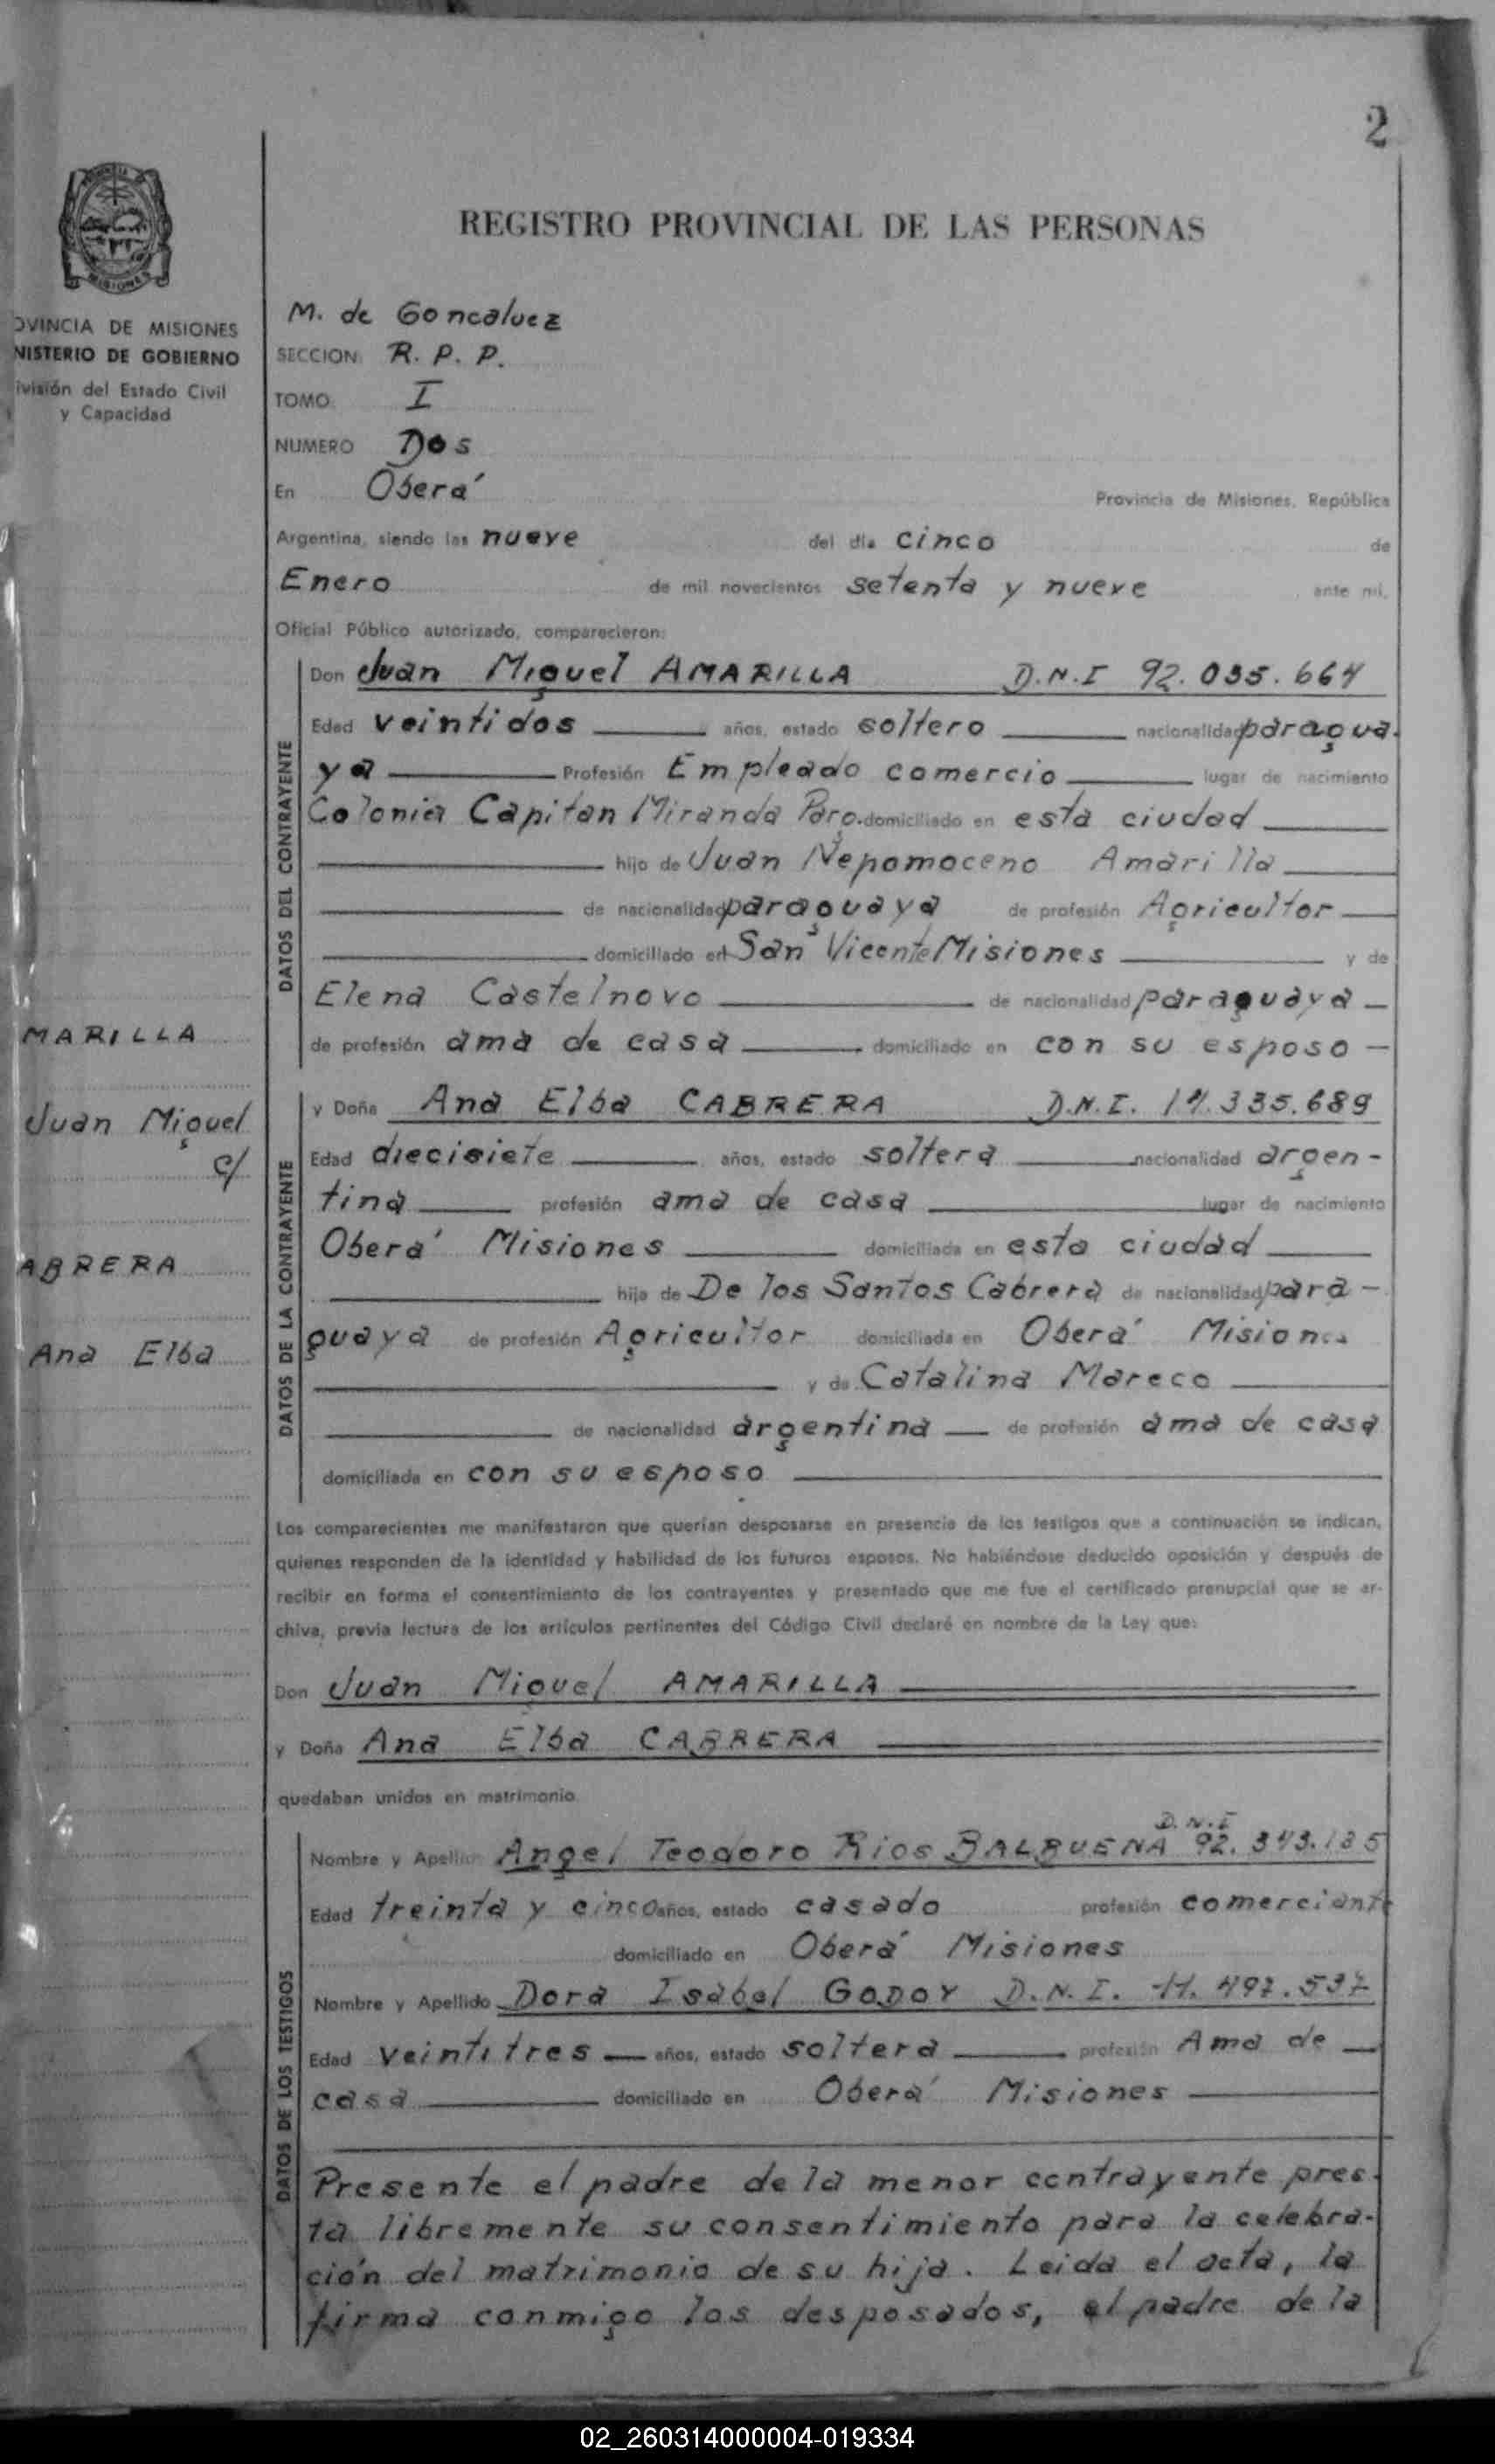 2
PROVINCIA DE MISIONES
OVINCIA DE MISIONES
NISTERIO DE GOBIERNO
ivisión del Estado Civil
y Capacidad
MARILLA
Juan Miguel
c/
ABRERA
Ana Elba
REGISTRO PROVINCIAL DE LAS PERSONAS
M. de Goncalvez
SECCION: R. P. P.
TOMO: I
NUMERO Dos
En Oberá Provincia de Misiones, República
Argentina, siendo las nueve del día cinco de
Enero de mil novecientos setenta y nueve ante mí,
Oficial Público autorizado, comparecieron:
DATOS DEL CONTRAYENTE
Don Juan Miguel AMARILLA D.N.I 92.035.664
Edad veintidos años, estado soltero nacionalidad paragua-
ya Profesión Empleado comercio lugar de nacimiento
Colonia Capitan Miranda Parg. domiciliado en esta ciudad
hijo de Juan Nepomoceno Amarilla
de nacionalidad paraguaya de profesión Agricultor
domiciliado en San Vicente Misiones y de
Elena Castelnovo de nacionalidad paraguaya
de profesión ama de casa domiciliado en con su esposo
DATOS DE LA CONTRAYENTE
y Doña Ana Elba CABRERA D.N.I. 14.335.689
Edad diecisiete años, estado soltera nacionalidad argen-
tina profesión ama de casa lugar de nacimiento
Oberá Misiones domiciliada en esta ciudad
hija de De los Santos Cabrera de nacionalidad para-
guaya de profesión Agricultor domiciliada en Oberá Misiones
y de Catalina Mareco
de nacionalidad argentina de profesión ama de casa
domiciliada en con su esposo
Los comparecientes me manifestaron que querían desposarse en presencia de los testigos que a continuación se indican,
quienes responden de la identidad y habilidad de los futuros esposos. No habiéndose deducido oposición y después de
recibir en forma el consentimiento de los contrayentes y presentado que me fue el certificado prenupcial que se ar-
chiva, previa lectura de los artículos pertinentes del Código Civil declaré en nombre de la Ley que:
Don Juan Miguel AMARILLA
y Doña Ana Elba CABRERA
quedaban unidos en matrimonio
DATOS DE LOS TESTIGOS
D.N.I
Nombre y Apellido Angel Teodoro Rios BALBUENA 92.343.185
Edad treinta y cinco años, estado casado profesión comerciante
domiciliado en Oberá Misiones
Nombre y Apellido Dora Isabel GODOY D.N.I. 11.497.537
Edad veintitres años, estado soltera profesión Ama de
casa domiciliado en Oberá Misiones
Presente el padre de la menor contrayente pres-
ta libremente su consentimiento para la celebra-
ción del matrimonio de su hija. Leida el acta, la
firma conmigo los desposados, el padre de la
02_260314000004-019334